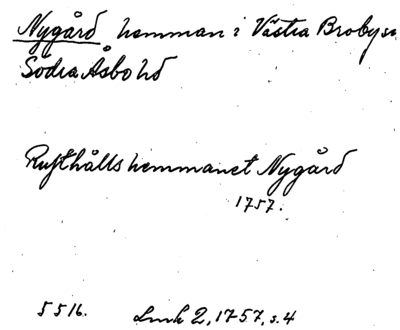 Nygård hemman i Västra Broby sn
Södra Åsbo hd
Rusthållshemmanet Nygård
1757.
5516. Lmk 2, 1757, s. 4